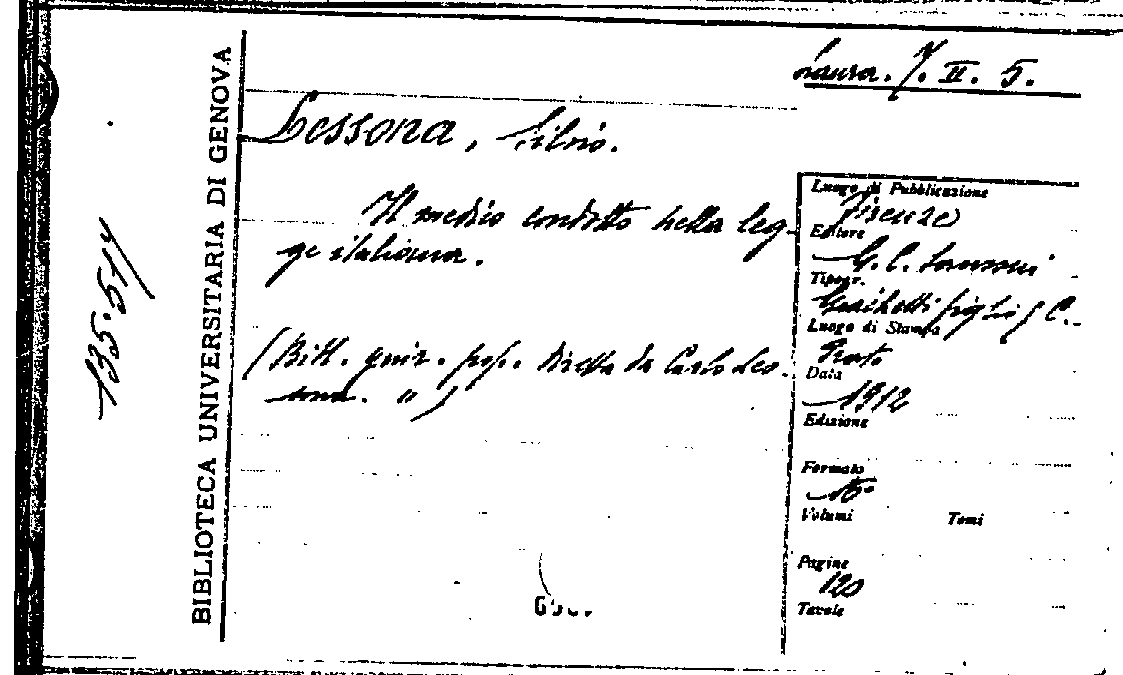 Laura. 7. II. 5.
BIBLIOTECA UNIVERSITARIA DI GENOVA
135.514
Lessona, Silvio.
Il medico condotto nella leg-
ge italiana.
(Bibl. giur. pop. diretta da Carlo Les-
sona. " )
Luogo di Pubblicazione
Firenze
Editore
G. C. Sansoni
Tipogr.
Giachetti figlio e C.
Luogo di Stampa
Prato
Data
1912
Edizione
Formato
16°
Volumi Tomi
Pagine
120
Tavole